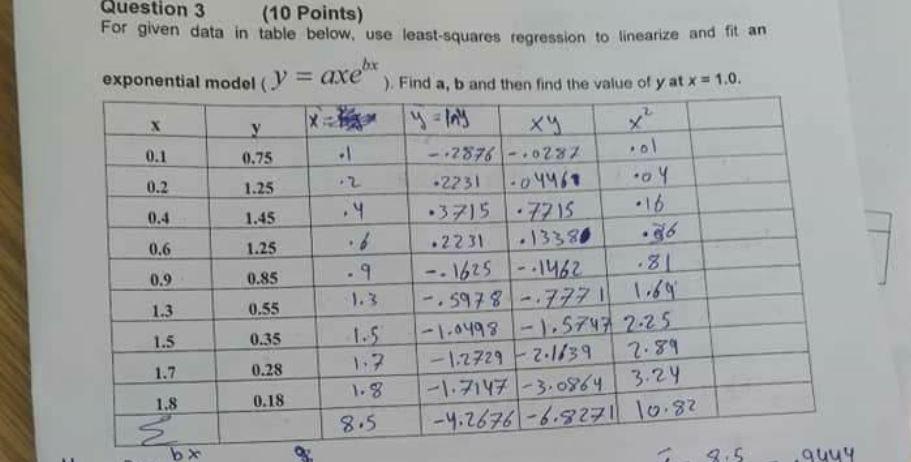 Question 3 (10 Points)
For given data in table below, use least-squares regression to linearize and fit an
exponential model ( y = axe^bx ). Find a, b and then find the value of y at x = 1.0.
x y x = y = lny xy x²
0.1 0.75 .1 -.2876 -.0287 .01
0.2 1.25 .2 .2231 .0446 .04
0.4 1.45 .4 .3715 .7715 .16
0.6 1.25 .6 .2231 .1338 .36
0.9 0.85 .9 -.1625 -.1462 .81
1.3 0.55 1.3 -.5978 -.7771 1.69
1.5 0.35 1.5 -1.0498 -1.5747 2.25
1.7 0.28 1.7 -1.2729 -2.1639 2.89
1.8 0.18 1.8 -1.7147 -3.0864 3.24
Σ 8.5 -4.2676 -6.8271 10.82
bx 8.5 .9444